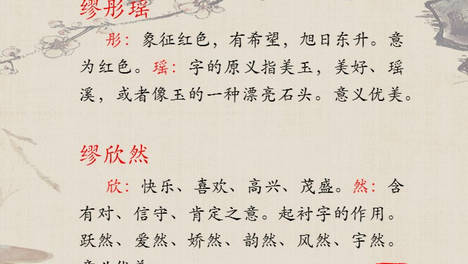 缪彤瑶
彤：象征红色，有希望，旭日东升。意
为红色。瑶：字的原义指美玉，美好、瑶
溪，或者像玉的一种漂亮石头。意义优美。
缪欣然
欣：快乐、喜欢、高兴、茂盛。然：含
有对、信守、肯定之意。起衬字的作用。
跃然、爱然、娇然、韵然、风然、宇然。